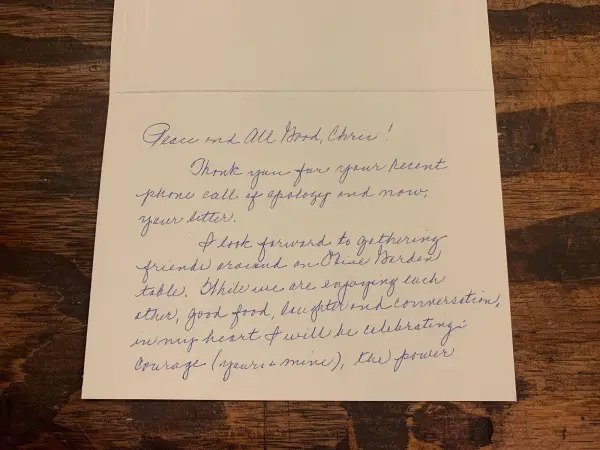 Peace and All Good, Chris!
Thank you for your recent
phone call of apology and now,
your letter.
I look forward to gathering
friends around an Olive Garden
table. While we are enjoying each
other, good food, laughter and conversation,
in my heart I will be celebrating:
courage (yours + mine), the power